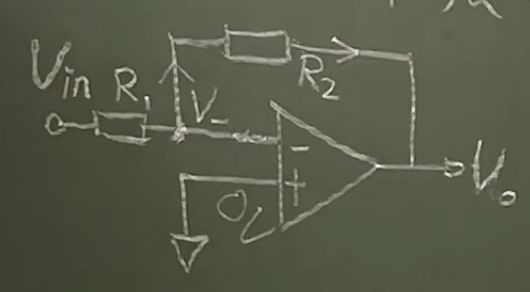 Vin
R1
V-
R2
-
+
0V
Vo